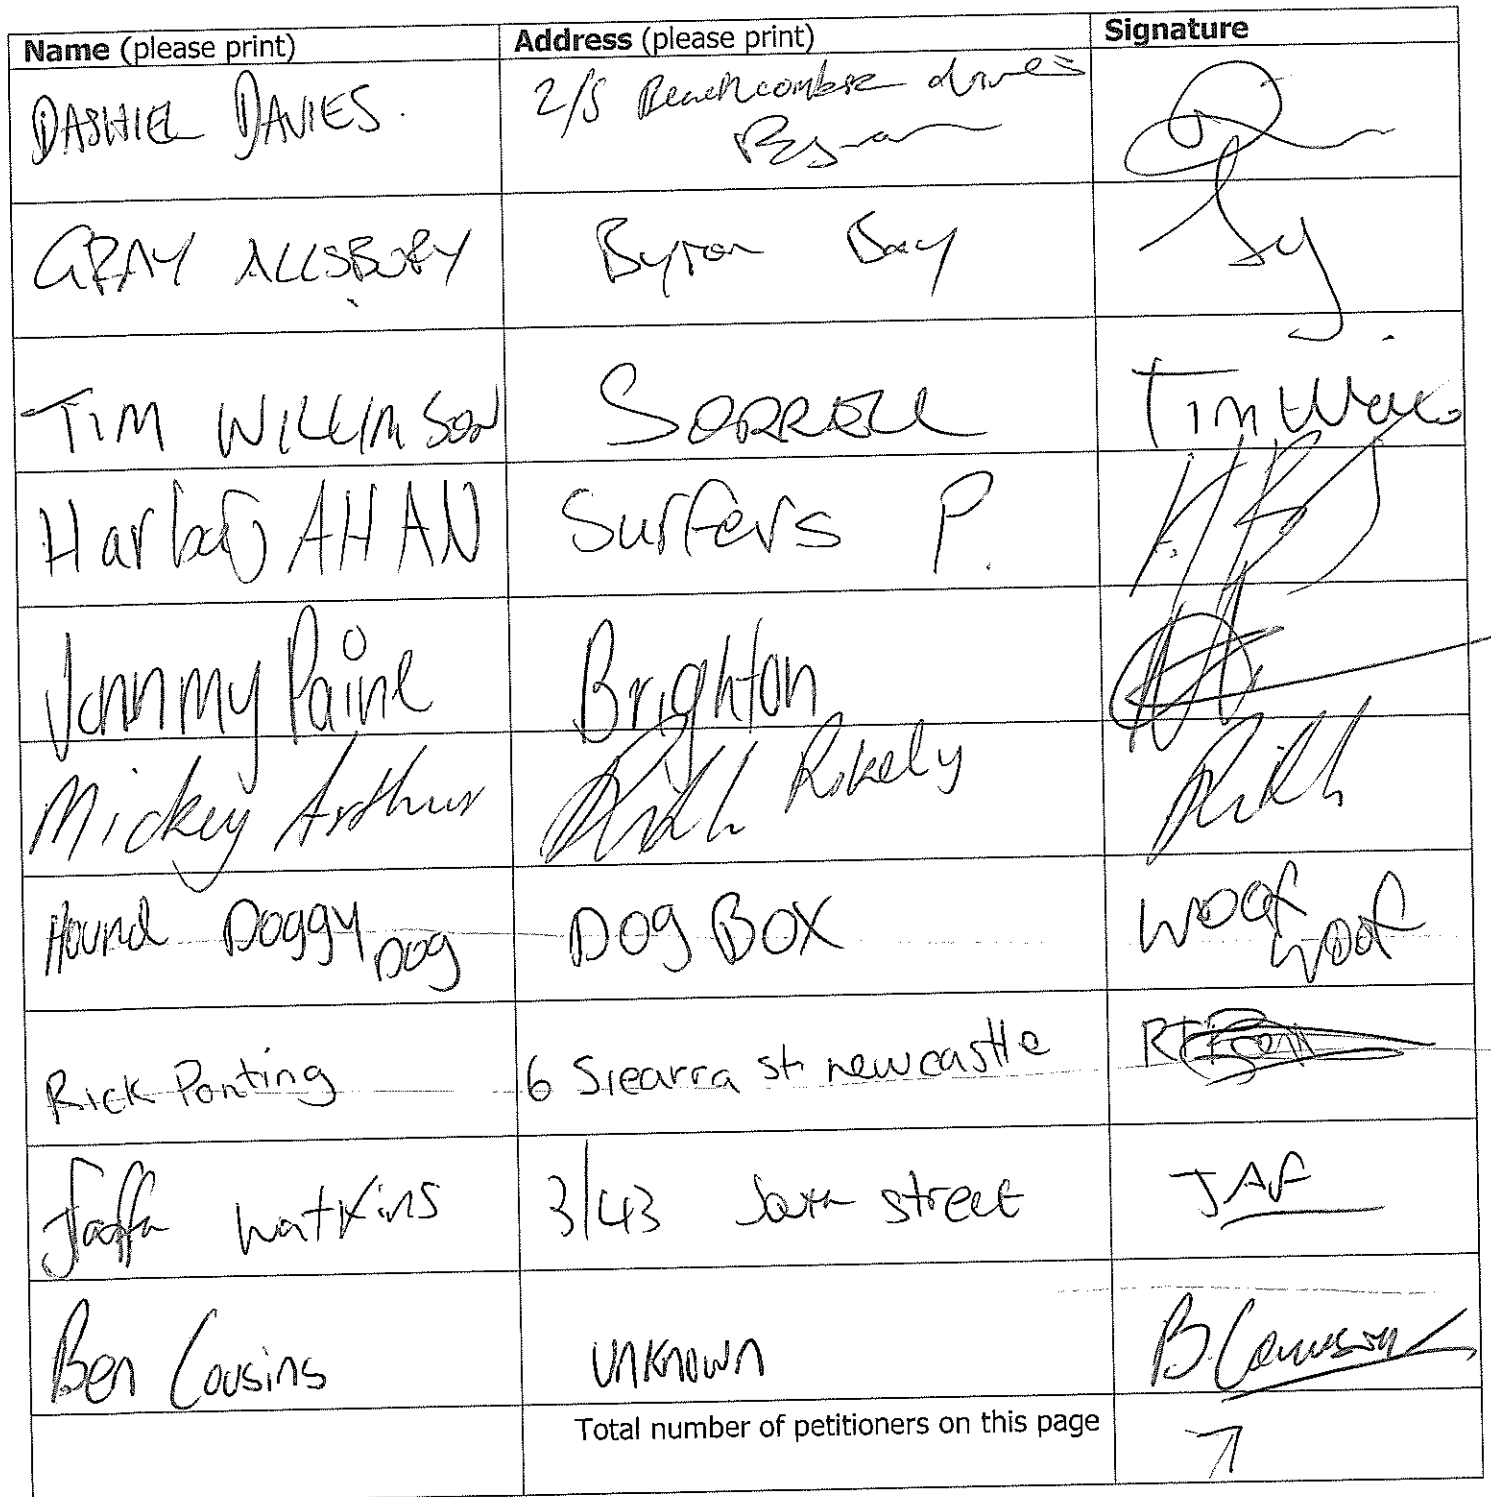 Name (please print) Address (please print) Signature
DASHIEL DAVIES. 2/5 Beachcomber drives
Byron
GRAY ALLSBURY Byron Bay
TIM WILKINSON SORRELL Tim Wilko
Harbaj AHAN Surfers P.
Jommy Paine Brighton
Mickey Arthur Rokely
Hound Doggy Dog DOg BOX woof woof
Rick Ponting 6 Siearra st newcastle
Jaffa Watkins 3/43 street JAF
Ben Cousins unknown B. Cousins
Total number of petitioners on this page